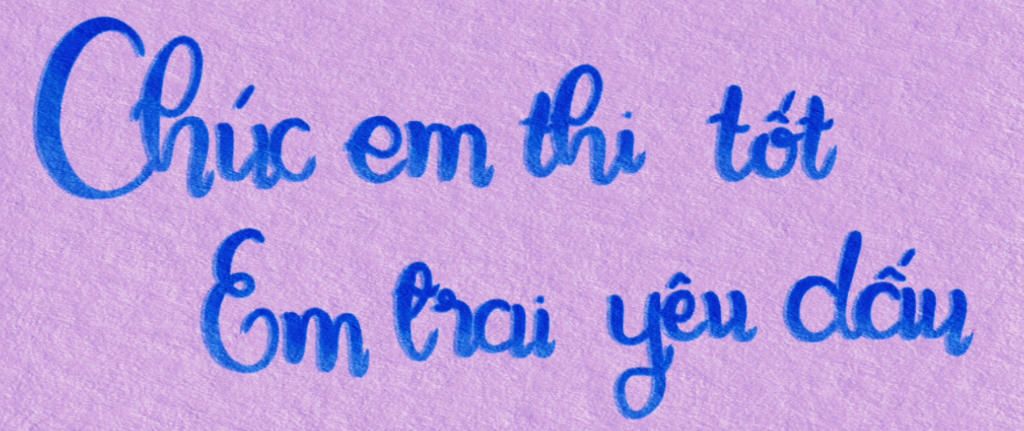 Chúc em thi tốt
Em trai yêu dấu